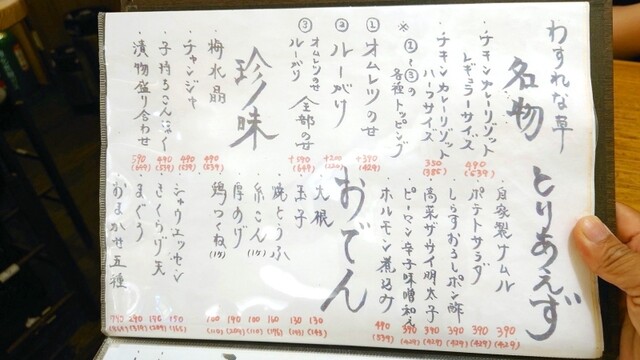 わすれな草
名物
・チキンカレーリゾット
レギュラーサイズ
490
(539)
・チキンカレーリゾット
ハーフサイズ
350
(385)
※①〜③の
各種トッピング
① オムレツのせ
+390
(429)
② ルーがけ
+200
③ オムレツのせ
ルーがけ
全部のせ
+590
(649)
珍味
・梅水晶
490
(539)
・チャンジャ
490
(539)
・子持ちこんにゃく
490
(539)
・漬物盛り合わせ
590
(649)
とりあえず
・自家製ナムル
390
(429)
・ポテトサラダ
390
(429)
・しらすおろしポン酢
390
(429)
・高菜ザーサイ明太子
390
(429)
・ピーマン辛子味噌和え
390
(429)
・ホルモン煮込み
490
(539)
おでん
・大根
130
(143)
・玉子
130
(143)
・焼とうふ
160
・糸こん
100
・厚あげ
190
(209)
・鶏つくね
100
(110)
・シャウエッセン
150
(165)
・きくらげ天
・まぐろ
290
(319)
・おまかせ五種